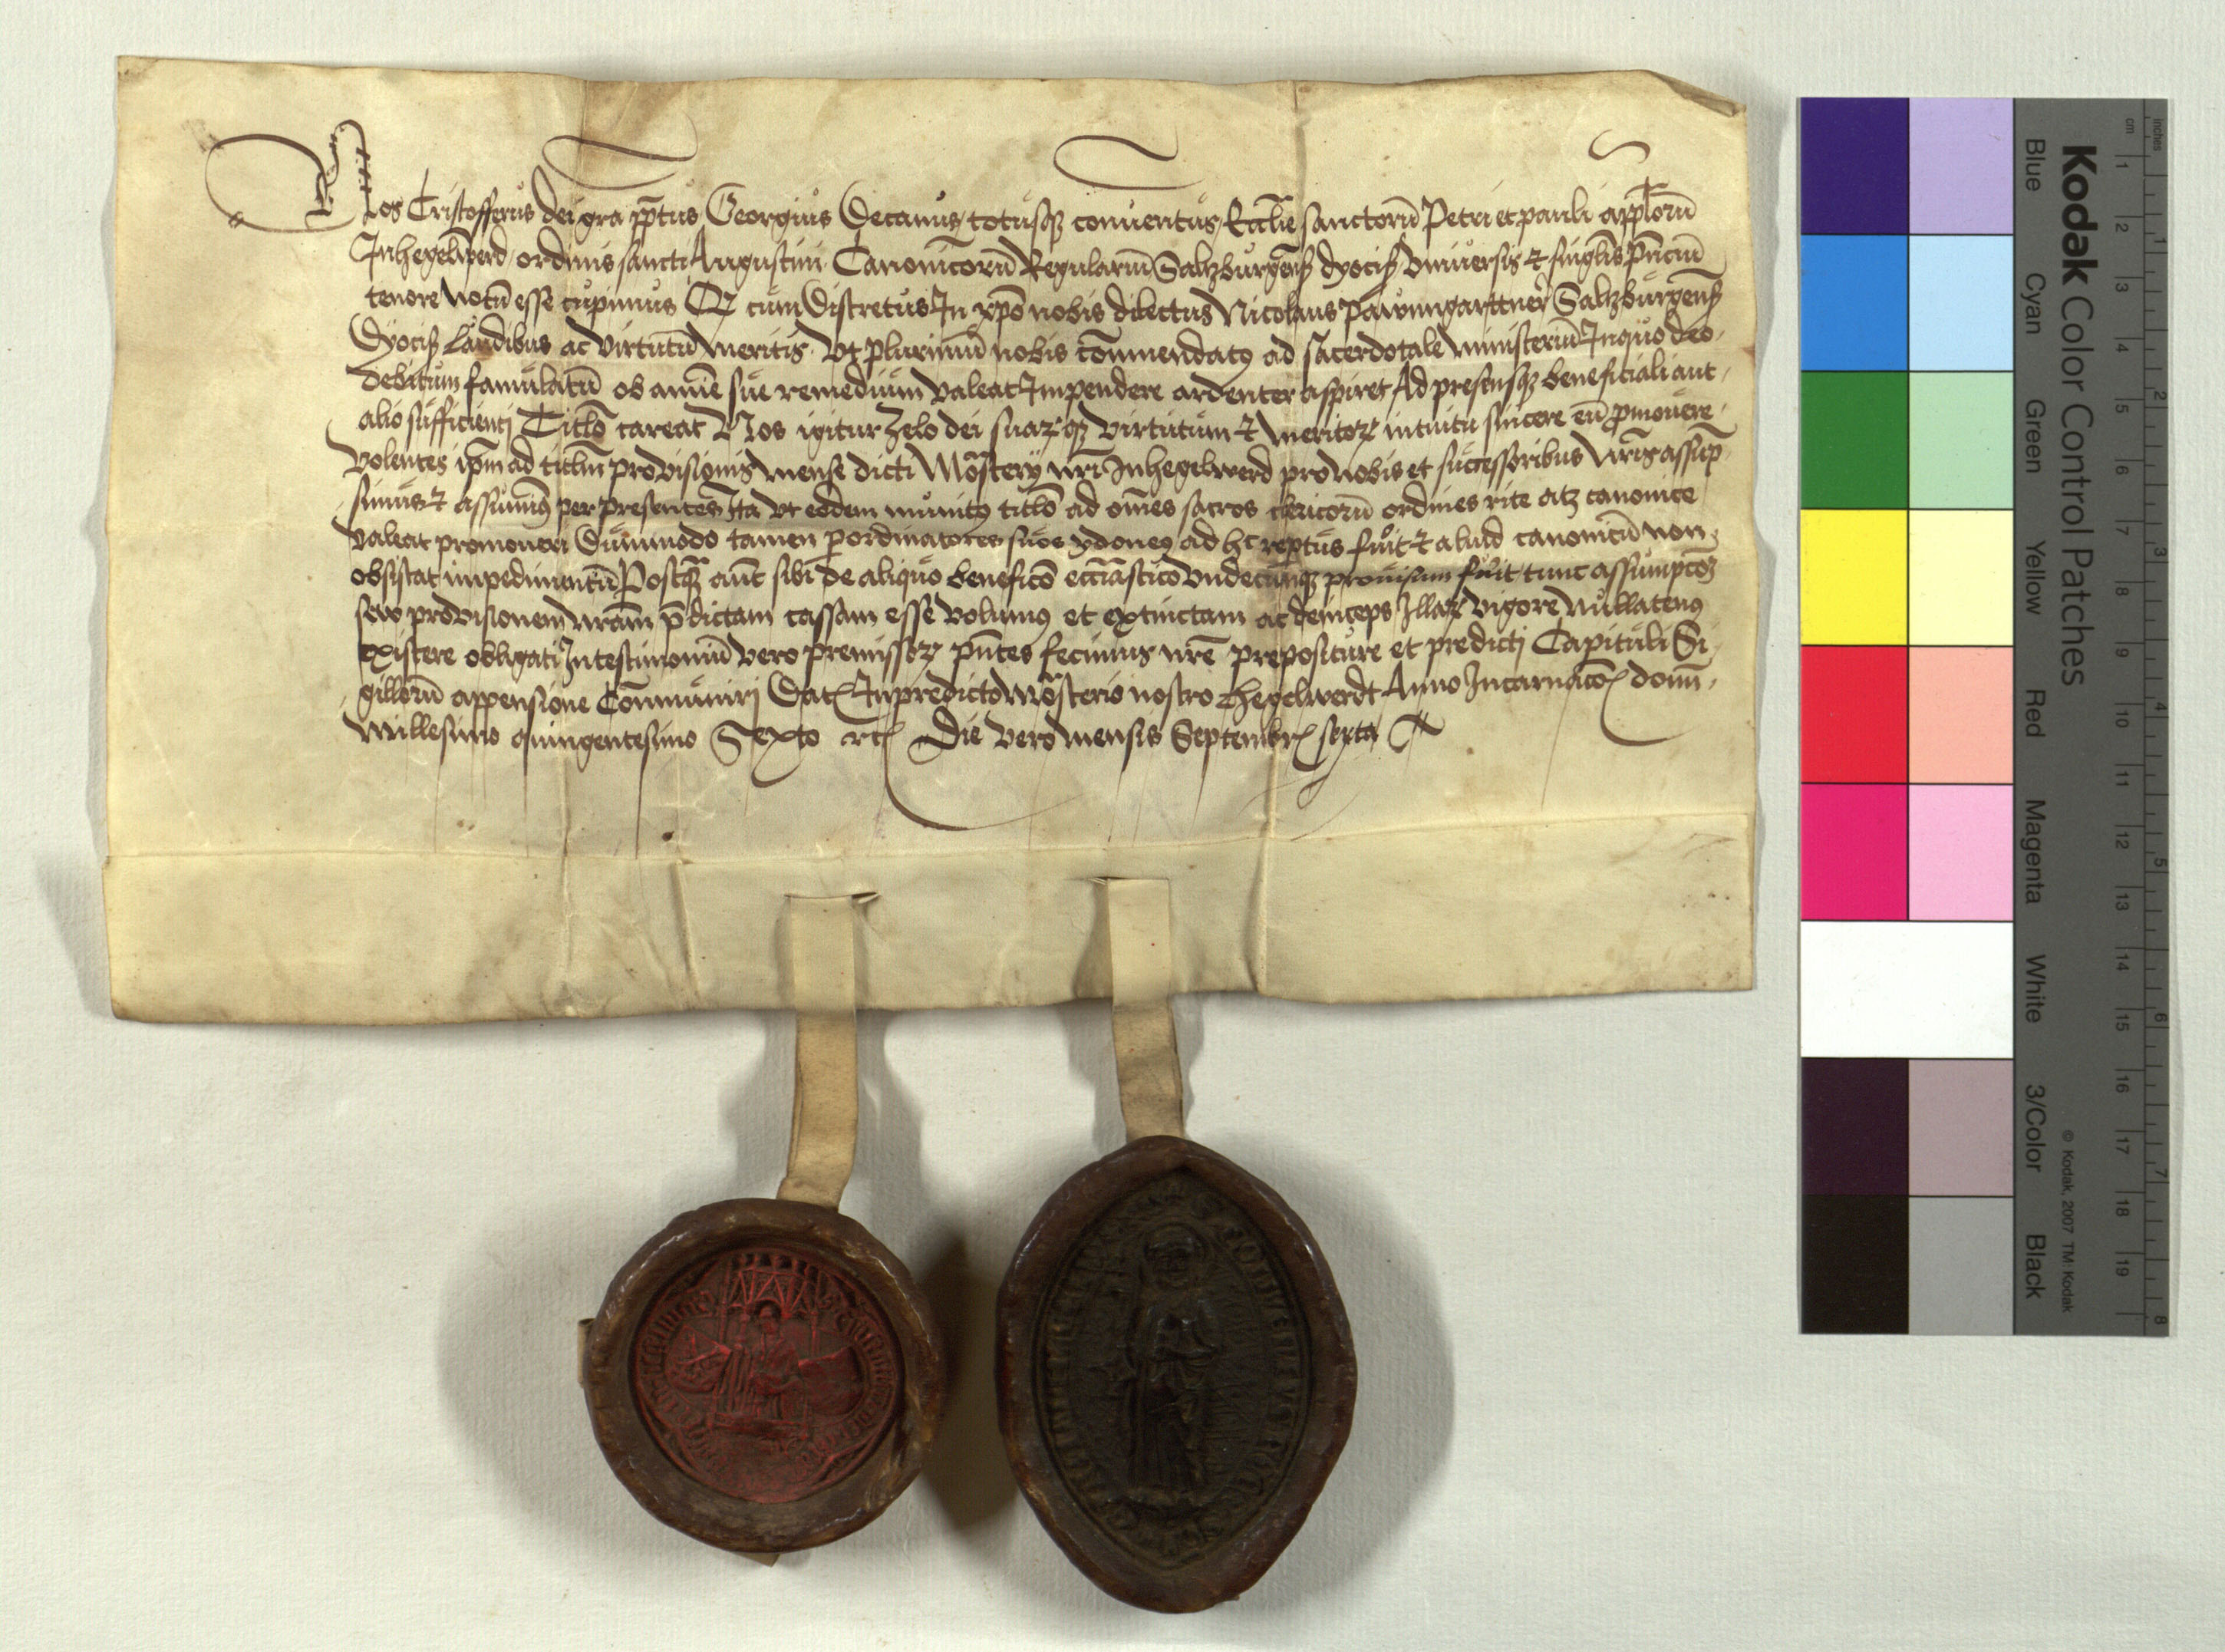 Nos Cristofferus dei gra pp̄tus Georgius Decanus totusqȝ conuentus Eccl̄ie sanctorū Petri et pauli app̄lorū
Inhegelw̄erd ordinis sancti Augustini Canonicorū Regulariū Saltzburgen̄ȝ dyociȝ Vniuersis ⁊ singl̄is pn̄ciū
tenore Notū esse cupimus Qȝ cum Discretus In xp̄o nobis dilectus Nicolaus Pawmgarttner Saltzburgen̄ȝ
Dyociȝ Laudibus ac Virtutū Meritis Vt plurimū nobis com̄endatꝰ ad sacerdotale Ministeriū Inquo deo
debitum famulatū ob anīe sue remedium Valeat Impendere ardenter aspiret Ad presensqȝ beneficiali aut
alio sufficienti Titl̄o careat Nos igitur Zelo dei suarꝫqȝ Virtutum ⁊ Meritorꝫ intuitu sincere eū ꝓmouere
Volentes ip̄m ad titl̄m prouisionis Mense dicti Mōstery nr̄i Inhegelwerd pro Nobis et successoribus Nr̄is assup̄
simus ⁊ assumimꝰ per presentes Ita Vt eodem munitꝰ titl̄o ad om̄es sacros clericorū ordines rite atqȝ canonice
Valeat promoueri Dummodo tamen ꝑ ordinatores suos ydoneꝰ ad hᶜ reptus fuit ⁊ aliud canonicū non
obsistat impedimentū Postqȝ aūt sibi de aliquo beneficō eccl̄iastico Vndecunqȝ prouisum fuit tunc assumpcōȝ
sew prouisionem nr̄am p̄dictam cassam esse Volumꝰ et extinctam ac deinceps Illarꝫ Vigore Nullatenꝰ
existere obligati In testimoniū Vero premissorꝫ pn̄tes fecimus nr̄e prepositure et predicti Capituli Si
gillorū appensione Com̄uniri Datꝭ In predicto Mōsterio nostro Zhegelwerdt Anno Incarnacōꝭ domī
Millesimo quingentesimo Sexto ꝛcꝭ Die Vero Mensis Septembrꝭ sexta
Kodak Color Control Patches
© Kodak, 2007 TM: Kodak
Blue Cyan Green Yellow Red Magenta White 3/Color Black
cm 1 2 3 4 5 6 7 8 9 10 11 12 13 14 15 16 17 18 19
inches 1 2 3 4 5 6 7 8